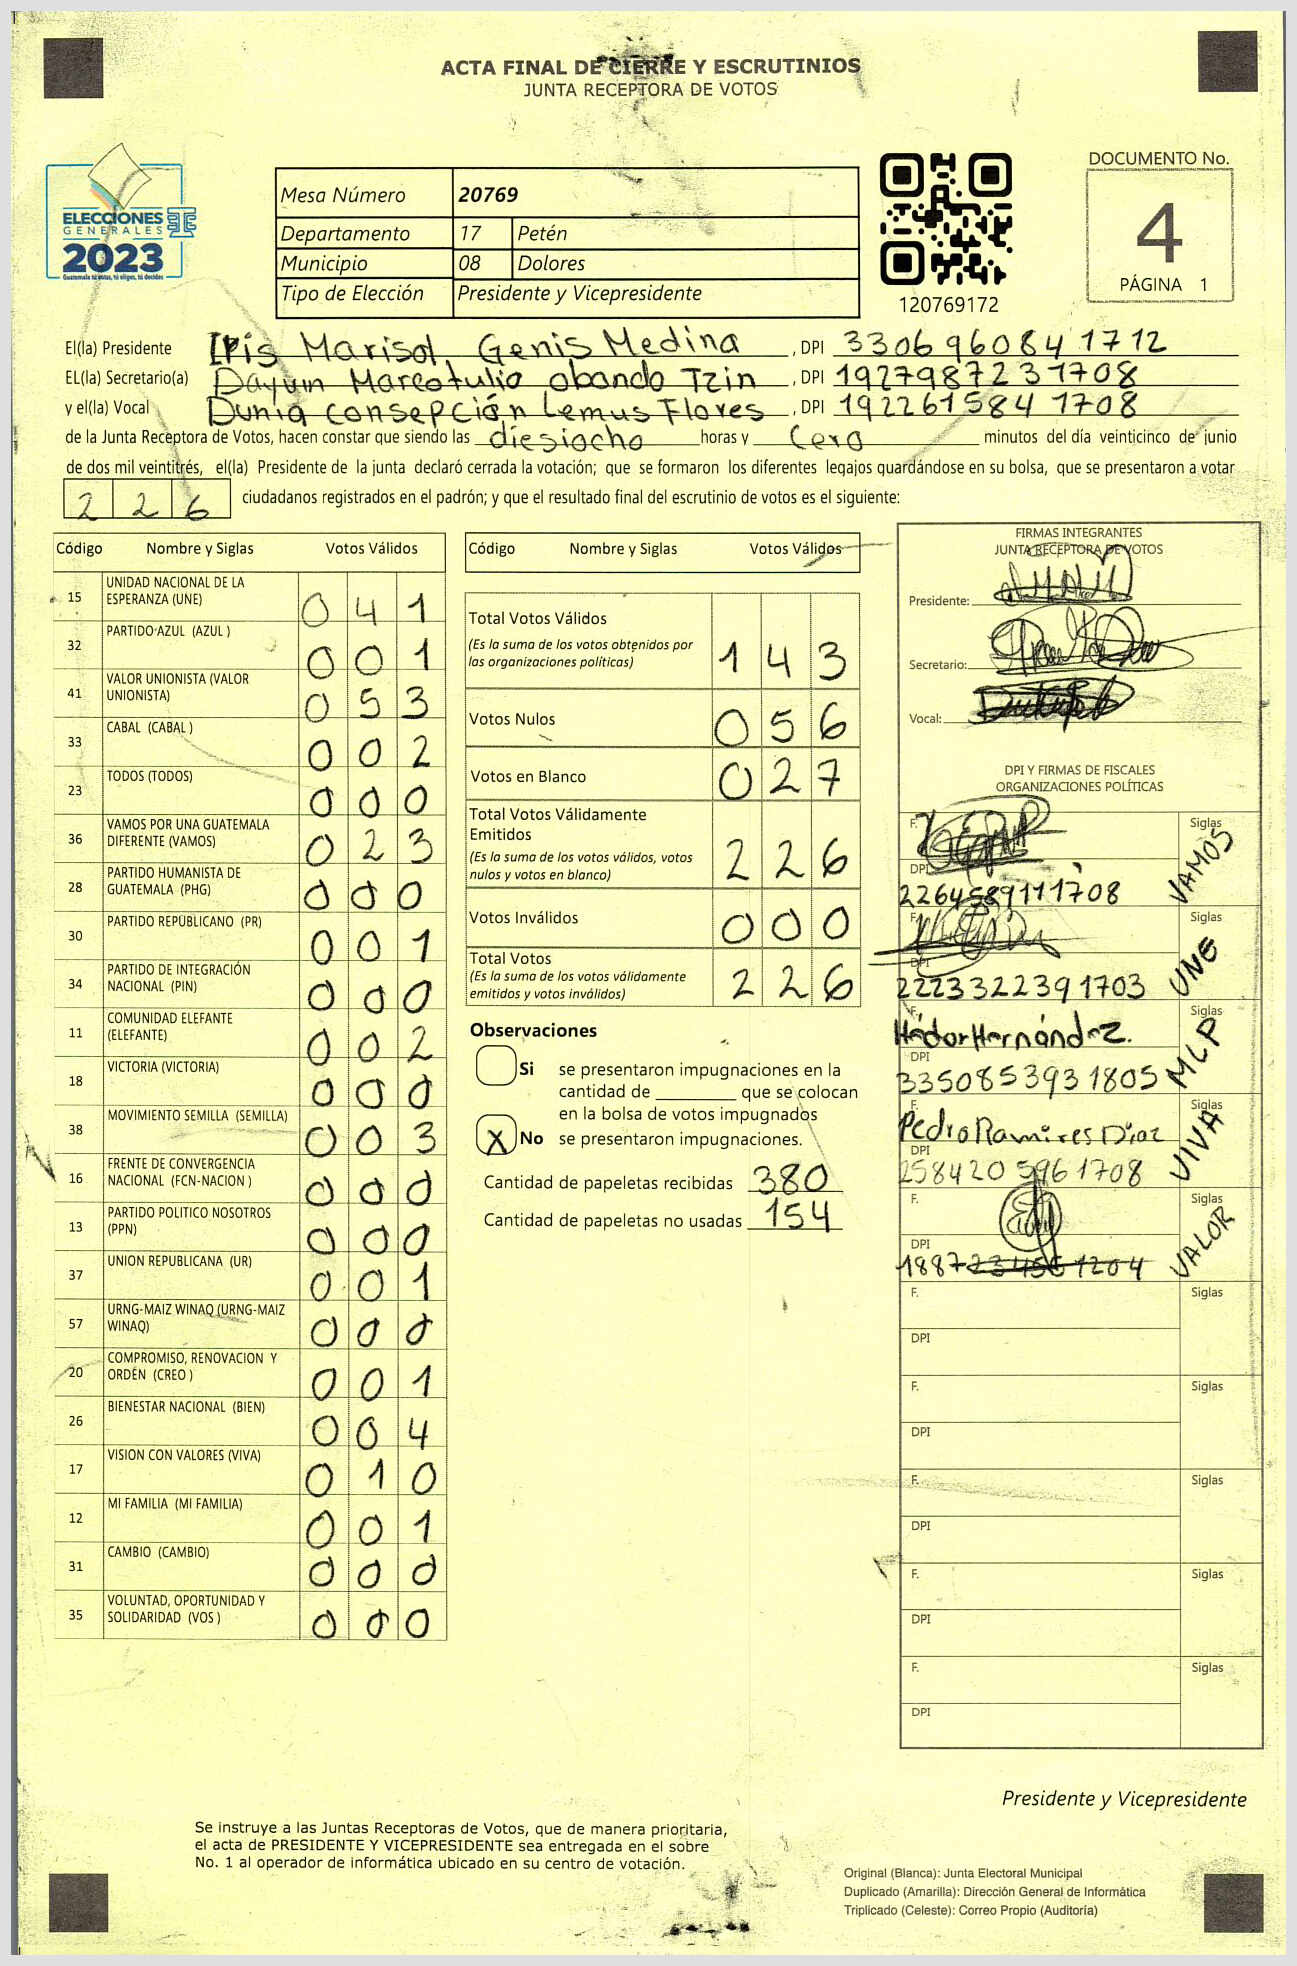 ACTA FINAL DE CIERRE Y ESCRUTINIOS
JUNTA RECEPTORA DE VOTOS
ELECCIONES
GENERALES
2023
Guatemala tú votas, tú eliges, tú decides
Mesa Número 20769
Departamento 17 Petén
Municipio 08 Dolores
Tipo de Elección Presidente y Vicepresidente
120769172
DOCUMENTO No.
4
PÁGINA 1
El(la) Presidente Iris Marisol Genis Medina, DPI 3306960841712
EL(la) Secretario(a) Dayum Marcotulio obando Tzin, DPI 1927987231708
y el(la) Vocal Dunia Consepción Lemus Flores, DPI 1922615841708
de la Junta Receptora de Votos, hacen constar que siendo las diesiocho horas y Cero minutos del día veinticinco de junio
de dos mil veintitrés, el(la) Presidente de la junta declaró cerrada la votación; que se formaron los diferentes legajos guardándose en su bolsa, que se presentaron a votar
226 ciudadanos registrados en el padrón; y que el resultado final del escrutinio de votos es el siguiente:
Código Nombre y Siglas Votos Válidos
15 UNIDAD NACIONAL DE LA ESPERANZA (UNE) 041
32 PARTIDO AZUL (AZUL ) 001
41 VALOR UNIONISTA (VALOR UNIONISTA) 053
33 CABAL (CABAL ) 002
23 TODOS (TODOS) 000
36 VAMOS POR UNA GUATEMALA DIFERENTE (VAMOS) 023
28 PARTIDO HUMANISTA DE GUATEMALA (PHG) 000
30 PARTIDO REPUBLICANO (PR) 001
34 PARTIDO DE INTEGRACIÓN NACIONAL (PIN) 000
11 COMUNIDAD ELEFANTE (ELEFANTE) 002
18 VICTORIA (VICTORIA) 000
38 MOVIMIENTO SEMILLA (SEMILLA) 003
16 FRENTE DE CONVERGENCIA NACIONAL (FCN-NACION ) 000
13 PARTIDO POLITICO NOSOTROS (PPN) 000
37 UNION REPUBLICANA (UR) 001
57 URNG-MAIZ WINAQ (URNG-MAIZ WINAQ) 000
20 COMPROMISO, RENOVACION Y ORDEN (CREO ) 001
26 BIENESTAR NACIONAL (BIEN) 004
17 VISION CON VALORES (VIVA) 010
12 MI FAMILIA (MI FAMILIA) 001
31 CAMBIO (CAMBIO) 000
35 VOLUNTAD, OPORTUNIDAD Y SOLIDARIDAD (VOS ) 000
Código Nombre y Siglas Votos Válidos
Total Votos Válidos 143
(Es la suma de los votos obtenidos por
las organizaciones políticas)
Votos Nulos 056
Votos en Blanco 027
Total Votos Válidamente
Emitidos 226
(Es la suma de los votos válidos, votos
nulos y votos en blanco)
Votos Inválidos 000
Total Votos 226
(Es la suma de los votos válidamente
emitidos y votos inválidos)
Observaciones
Si se presentaron impugnaciones en la
cantidad de ________ que se colocan
en la bolsa de votos impugnados
X No se presentaron impugnaciones.
Cantidad de papeletas recibidas 380
Cantidad de papeletas no usadas 154
FIRMAS INTEGRANTES
JUNTA RECEPTORA DE VOTOS
Presidente:
Secretario:
Vocal:
DPI Y FIRMAS DE FISCALES
ORGANIZACIONES POLÍTICAS
F. Siglas VAMOS
DPI 2264589111708
F. Siglas UNE
DPI 2223322391703
F. Héctor Hernández. Siglas MLP
DPI 3350853931805
F. Pedro Ramires Diaz Siglas VIVA
DPI 2584205961708
F. Siglas VALOR
DPI 1887234561204
F. Siglas
DPI
F. Siglas
DPI
F. Siglas
DPI
F. Siglas
DPI
F. Siglas
DPI
Presidente y Vicepresidente
Se instruye a las Juntas Receptoras de Votos, que de manera prioritaria,
el acta de PRESIDENTE Y VICEPRESIDENTE sea entregada en el sobre
No. 1 al operador de informática ubicado en su centro de votación.
Original (Blanca): Junta Electoral Municipal
Duplicado (Amarilla): Dirección General de Informática
Triplicado (Celeste): Correo Propio (Auditoría)